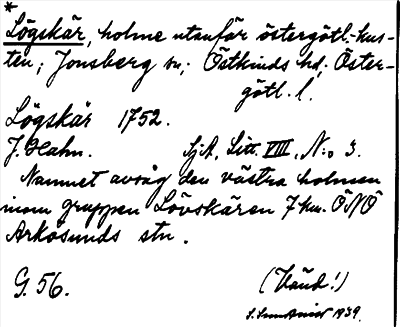 *
Lögskär, holme utanför östergötl.-kus-
ten; Jonsberg sn; Östkinds hd; Öster-
götl. l.
Lögskär 1752.
J. Hahn. SjA, Litt. VIII, N:o 3.
Namnet avsåg den västra holmen
inom gruppen Lövskären 7 km. ÖNÖ
Arkösunds stn.
G. 56. (Vänd!)
1939.